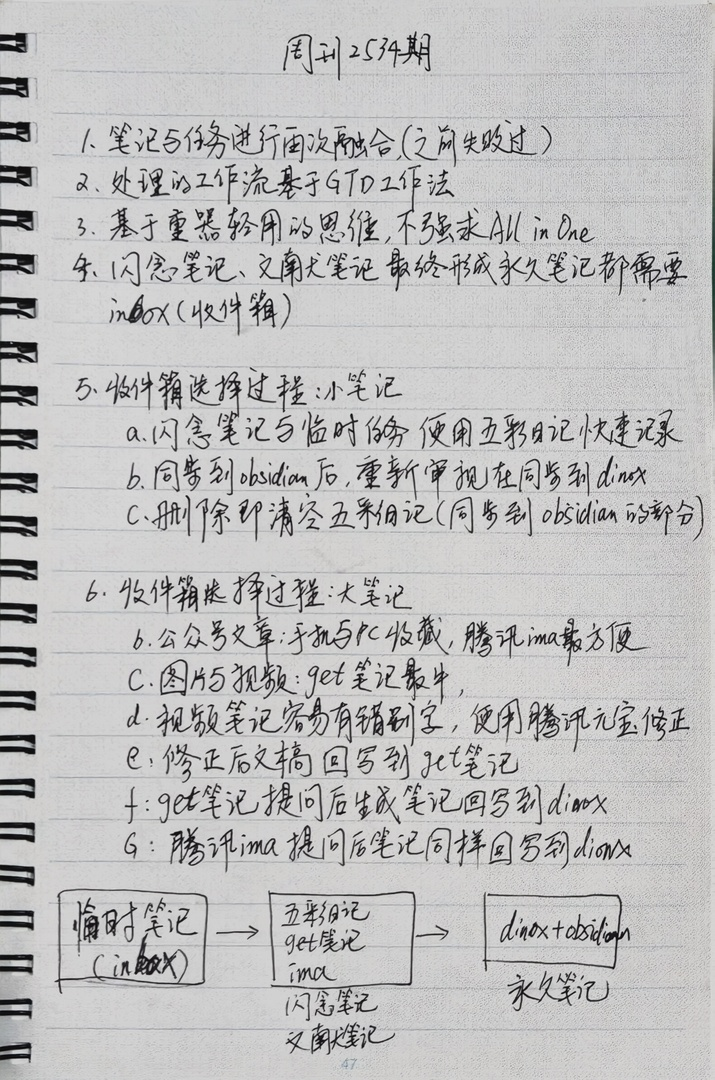 周刊2534期
1、笔记与任务进行再次融合,(之前失败过)
2、处理的工作流基于GTD工作法
3、基于重器轻用的思维,不强求All in One
4、闪念笔记、文南犬笔记最终形成永久笔记都需要
inbox(收件箱)
5、收件箱选择过程:小笔记
a.闪念笔记与临时任务 使用五彩日记快速记录
b.同步到obsidian后,重新审视在同步到dinox
C.删除即清空五彩日记(同步到obsidian的部分)
6、收件箱选择过程:大笔记
b.公众号文章:手机与PC收藏,腾讯ima最方便
C.图片与视频:get笔记最牛,
d.视频笔记容易有错别字,使用腾讯元宝修正
e:修正后文稿回写到get笔记
f:get笔记提问后生成笔记回写到dinox
G:腾讯ima提问后笔记同样回写到dionx
临时笔记
(inbox)
→
五彩日记
get笔记
ima
→
dinox+obsidian
闪念笔记
文南犬笔记
永久笔记
47